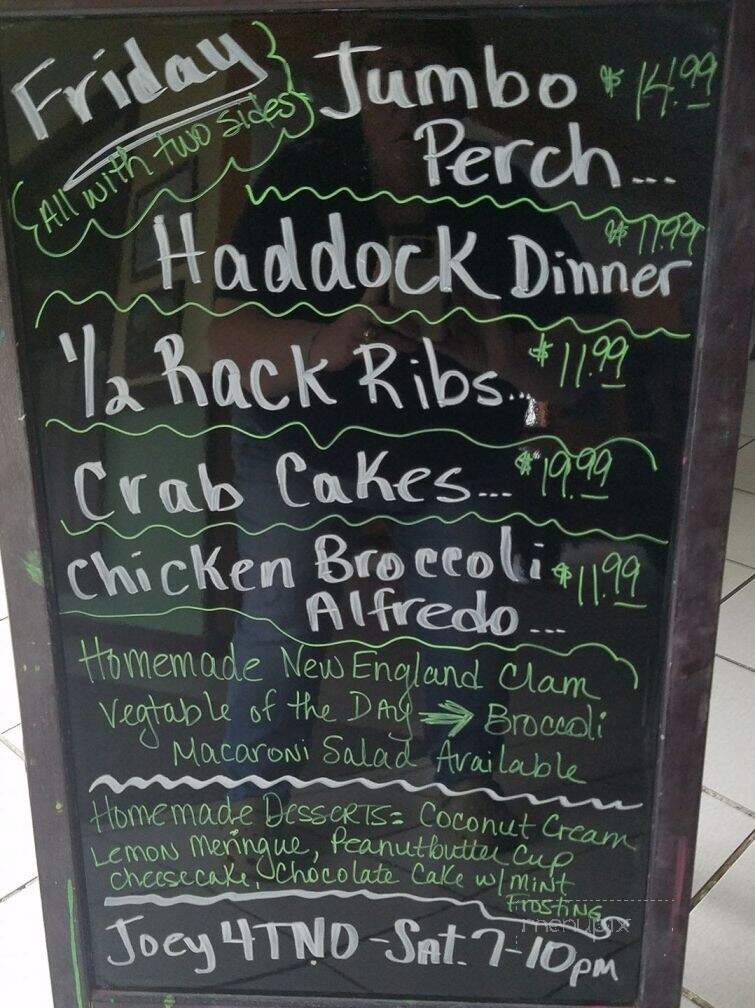 Friday
All with two sides
Jumbo $14.99
Perch...
$11.99
Haddock Dinner
1/2 Rack Ribs... $11.99
Crab Cakes... $19.99
Chicken Broccoli $11.99
Alfredo...
Homemade New England Clam
Vegtable of the Day → Broccoli
Macaroni Salad Available
Homemade Desserts: Coconut Cream
Lemon Meringue, Peanutbutter Cup
Cheesecake, Chocolate Cake w/ mint
frosting
Joey 4TNO - Sat. 7-10pm
menupix